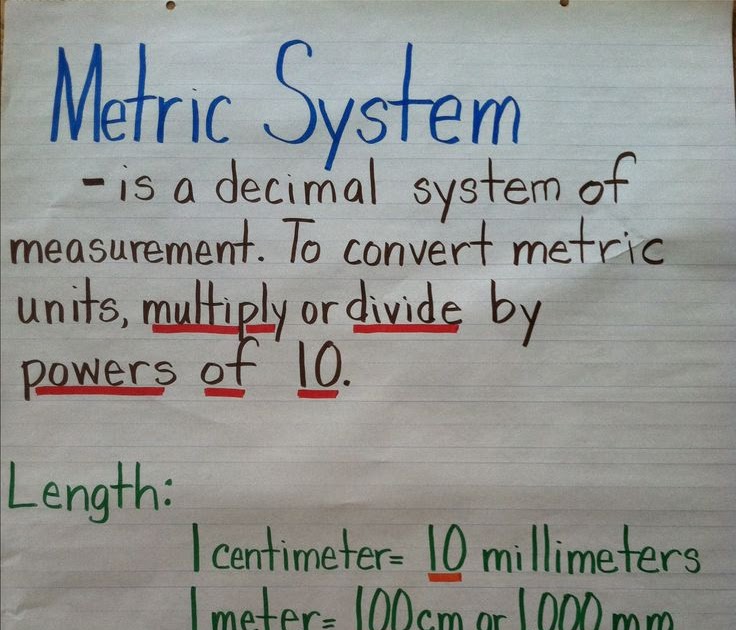 Metric System
- is a decimal system of
measurement. To convert metric
units, multiply or divide by
powers of 10.
Length:
1 centimeter= 10 millimeters
1 meter= 100cm or 1000mm